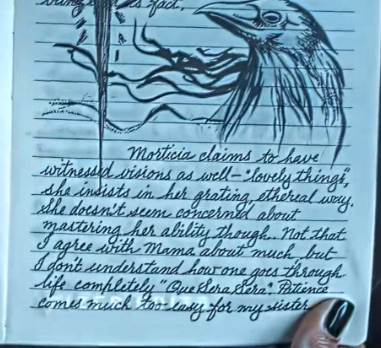 fact.
Morticia claims to have
witnessed visions as well—"lovely things",
she insists in her grating, ethereal way.
She doesn't seem concerned about
mastering her ability though. Not that
I agree with Mama about much, but
I don't understand how one goes through
life completely "Que Sera Sera". Patience
comes much too easy for my sister